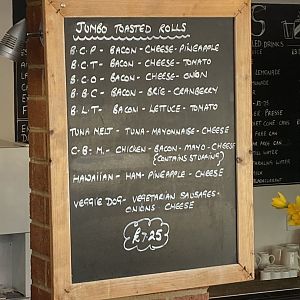 JUMBO TOASTED ROLLS
B.C.P - BACON - CHEESE - PINEAPPLE
B.C.T - BACON - CHEESE - TOMATO
B.C.O - BACON - CHEESE - ONION
B.B.C - BACON - BRIE - CRANBERRY
B.L.T - BACON - LETTUCE - TOMATO
TUNA MELT - TUNA - MAYONNAISE - CHEESE
C-B-M - CHICKEN - BACON - MAYO - CHEESE
(CONTAINS STUFFING)
HAWAIIAN - HAM - PINEAPPLE - CHEESE
VEGGIE DOG - VEGETARIAN SAUSAGES -
ONIONS CHEESE
£7.25
DRINKS
LEMONADE